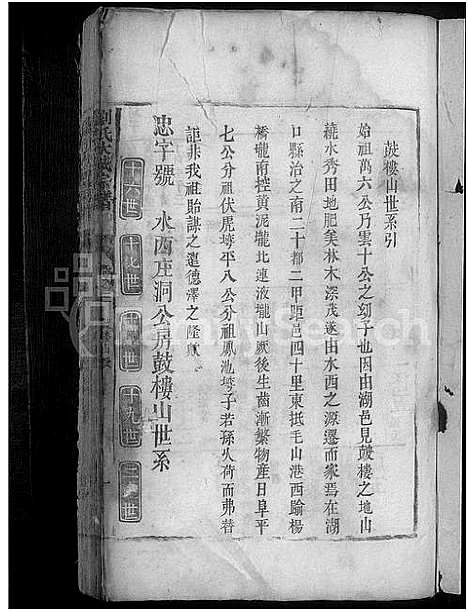 鼓樓山世系引
始祖萬六公乃雲十公之幼子也因由湖邑見鼓樓之地山
繞水秀田地肥美林木深茂遂由水西之源遷而家焉在湖
口縣治之南二十都二甲距邑四十里東抵毛山港西踰楊
橋壠南控黃泥壠北連液壠山厥後生齒漸繁物産日阜平
七公分祖伏虎塆平八公分祖鳳池塆子若孫久荷而弗替
詎非我祖貽謀之遠德澤之隆歟
忠字號 水西庄洞公房鼓樓山世系
十六世 十七世 十八世 十九世 二十世
劉氏
FamilySearch